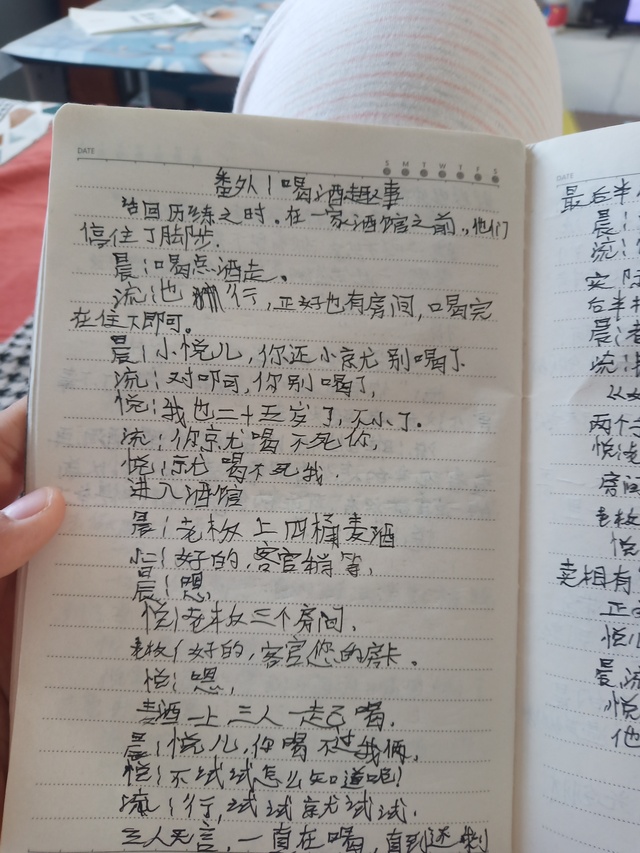 DATE
S M T W T F S
番外1喝酒趣事
当回历练之时.在一家酒馆之前.,他们
停住了脚步.
晨:喝点酒走。
流:也行,正好也有房间,喝完
在住下即可。
晨:小悦儿,你还小就别喝了.
流:对叮可,你别喝了,
悦:我也二十五岁了,不小了.
流:你就喝不死你,
悦:就喝不死我.
进入酒馆
晨:老板上四桶麦酒
小二:好的,客官稍等,
晨:嗯,
悦:老板三个房间,
老板:好的,客官您的房卡。
悦:嗯,
麦酒一上三人一起喝,
晨:悦儿,你喝不过我俩,
悦:不试试怎么知道呢!
流:行,试试就试试.
三人无言,一直在喝,直到还剩
DATE
最后半
晨:
流:
实际
后半
晨:
流:
从
两个
悦
房间
老板
悦
卖相有
正
悦儿
晨,流
悦
他